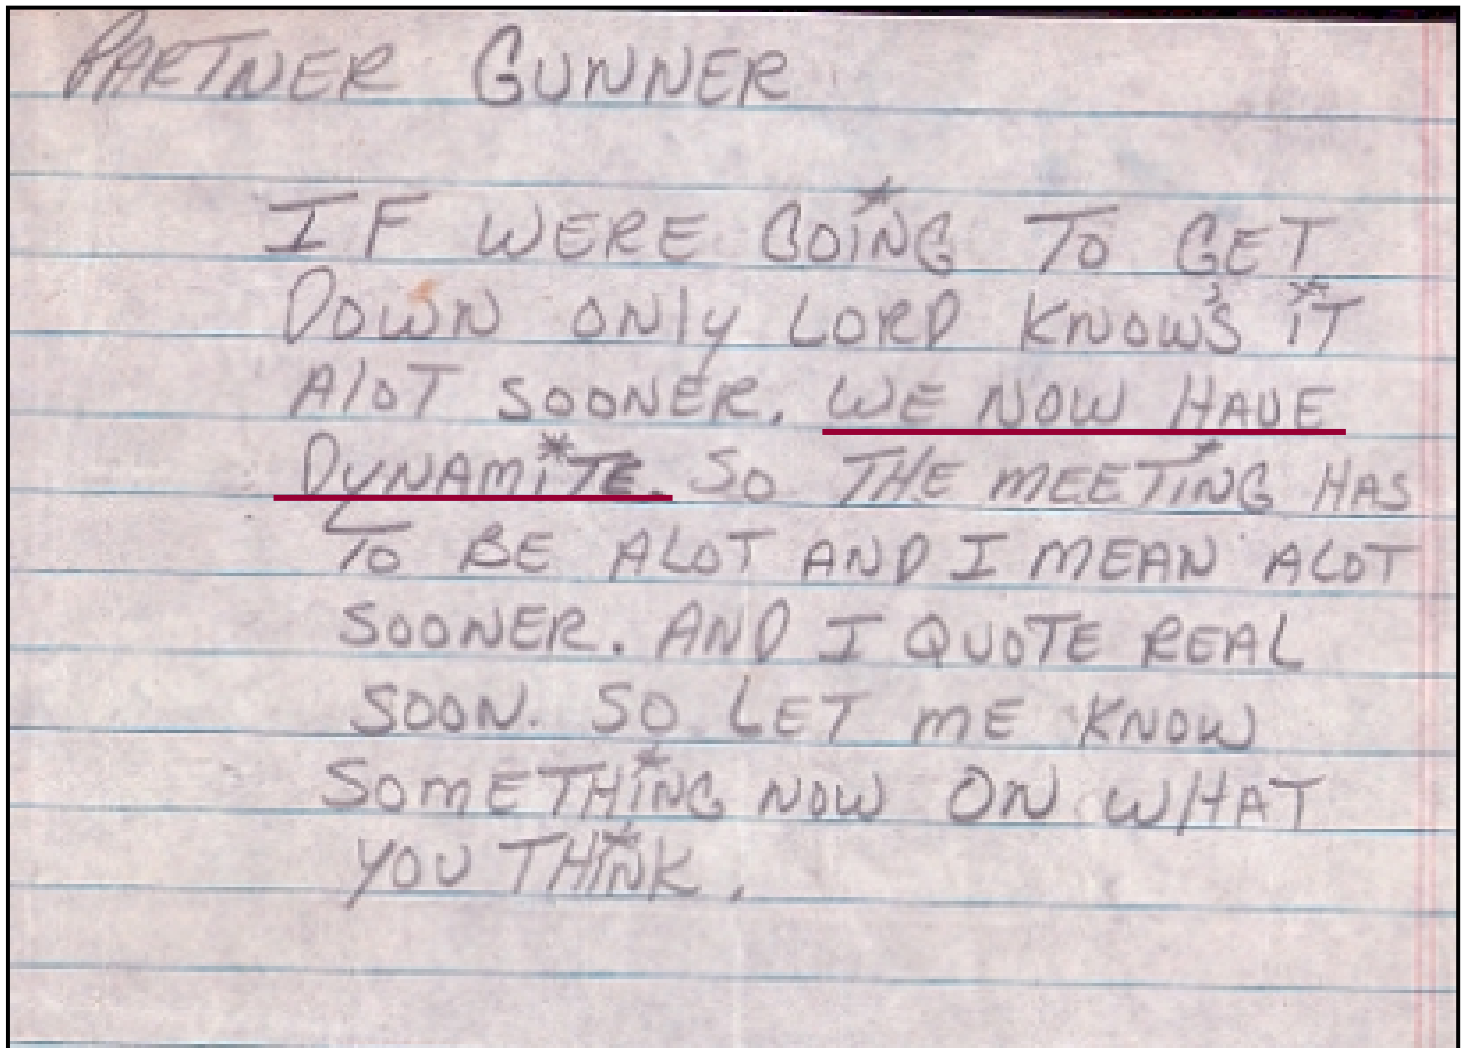 PARTNER GUNNER
IF WERE GOING TO GET
DOWN ONLY LORD KNOW'S IT
ALOT SOONER. WE NOW HAVE
DYNAMITE. SO THE MEETING HAS
TO BE ALOT AND I MEAN ALOT
SOONER. AND I QUOTE REAL
SOON. SO LET ME KNOW
SOMETHING NOW ON WHAT
YOU THINK.